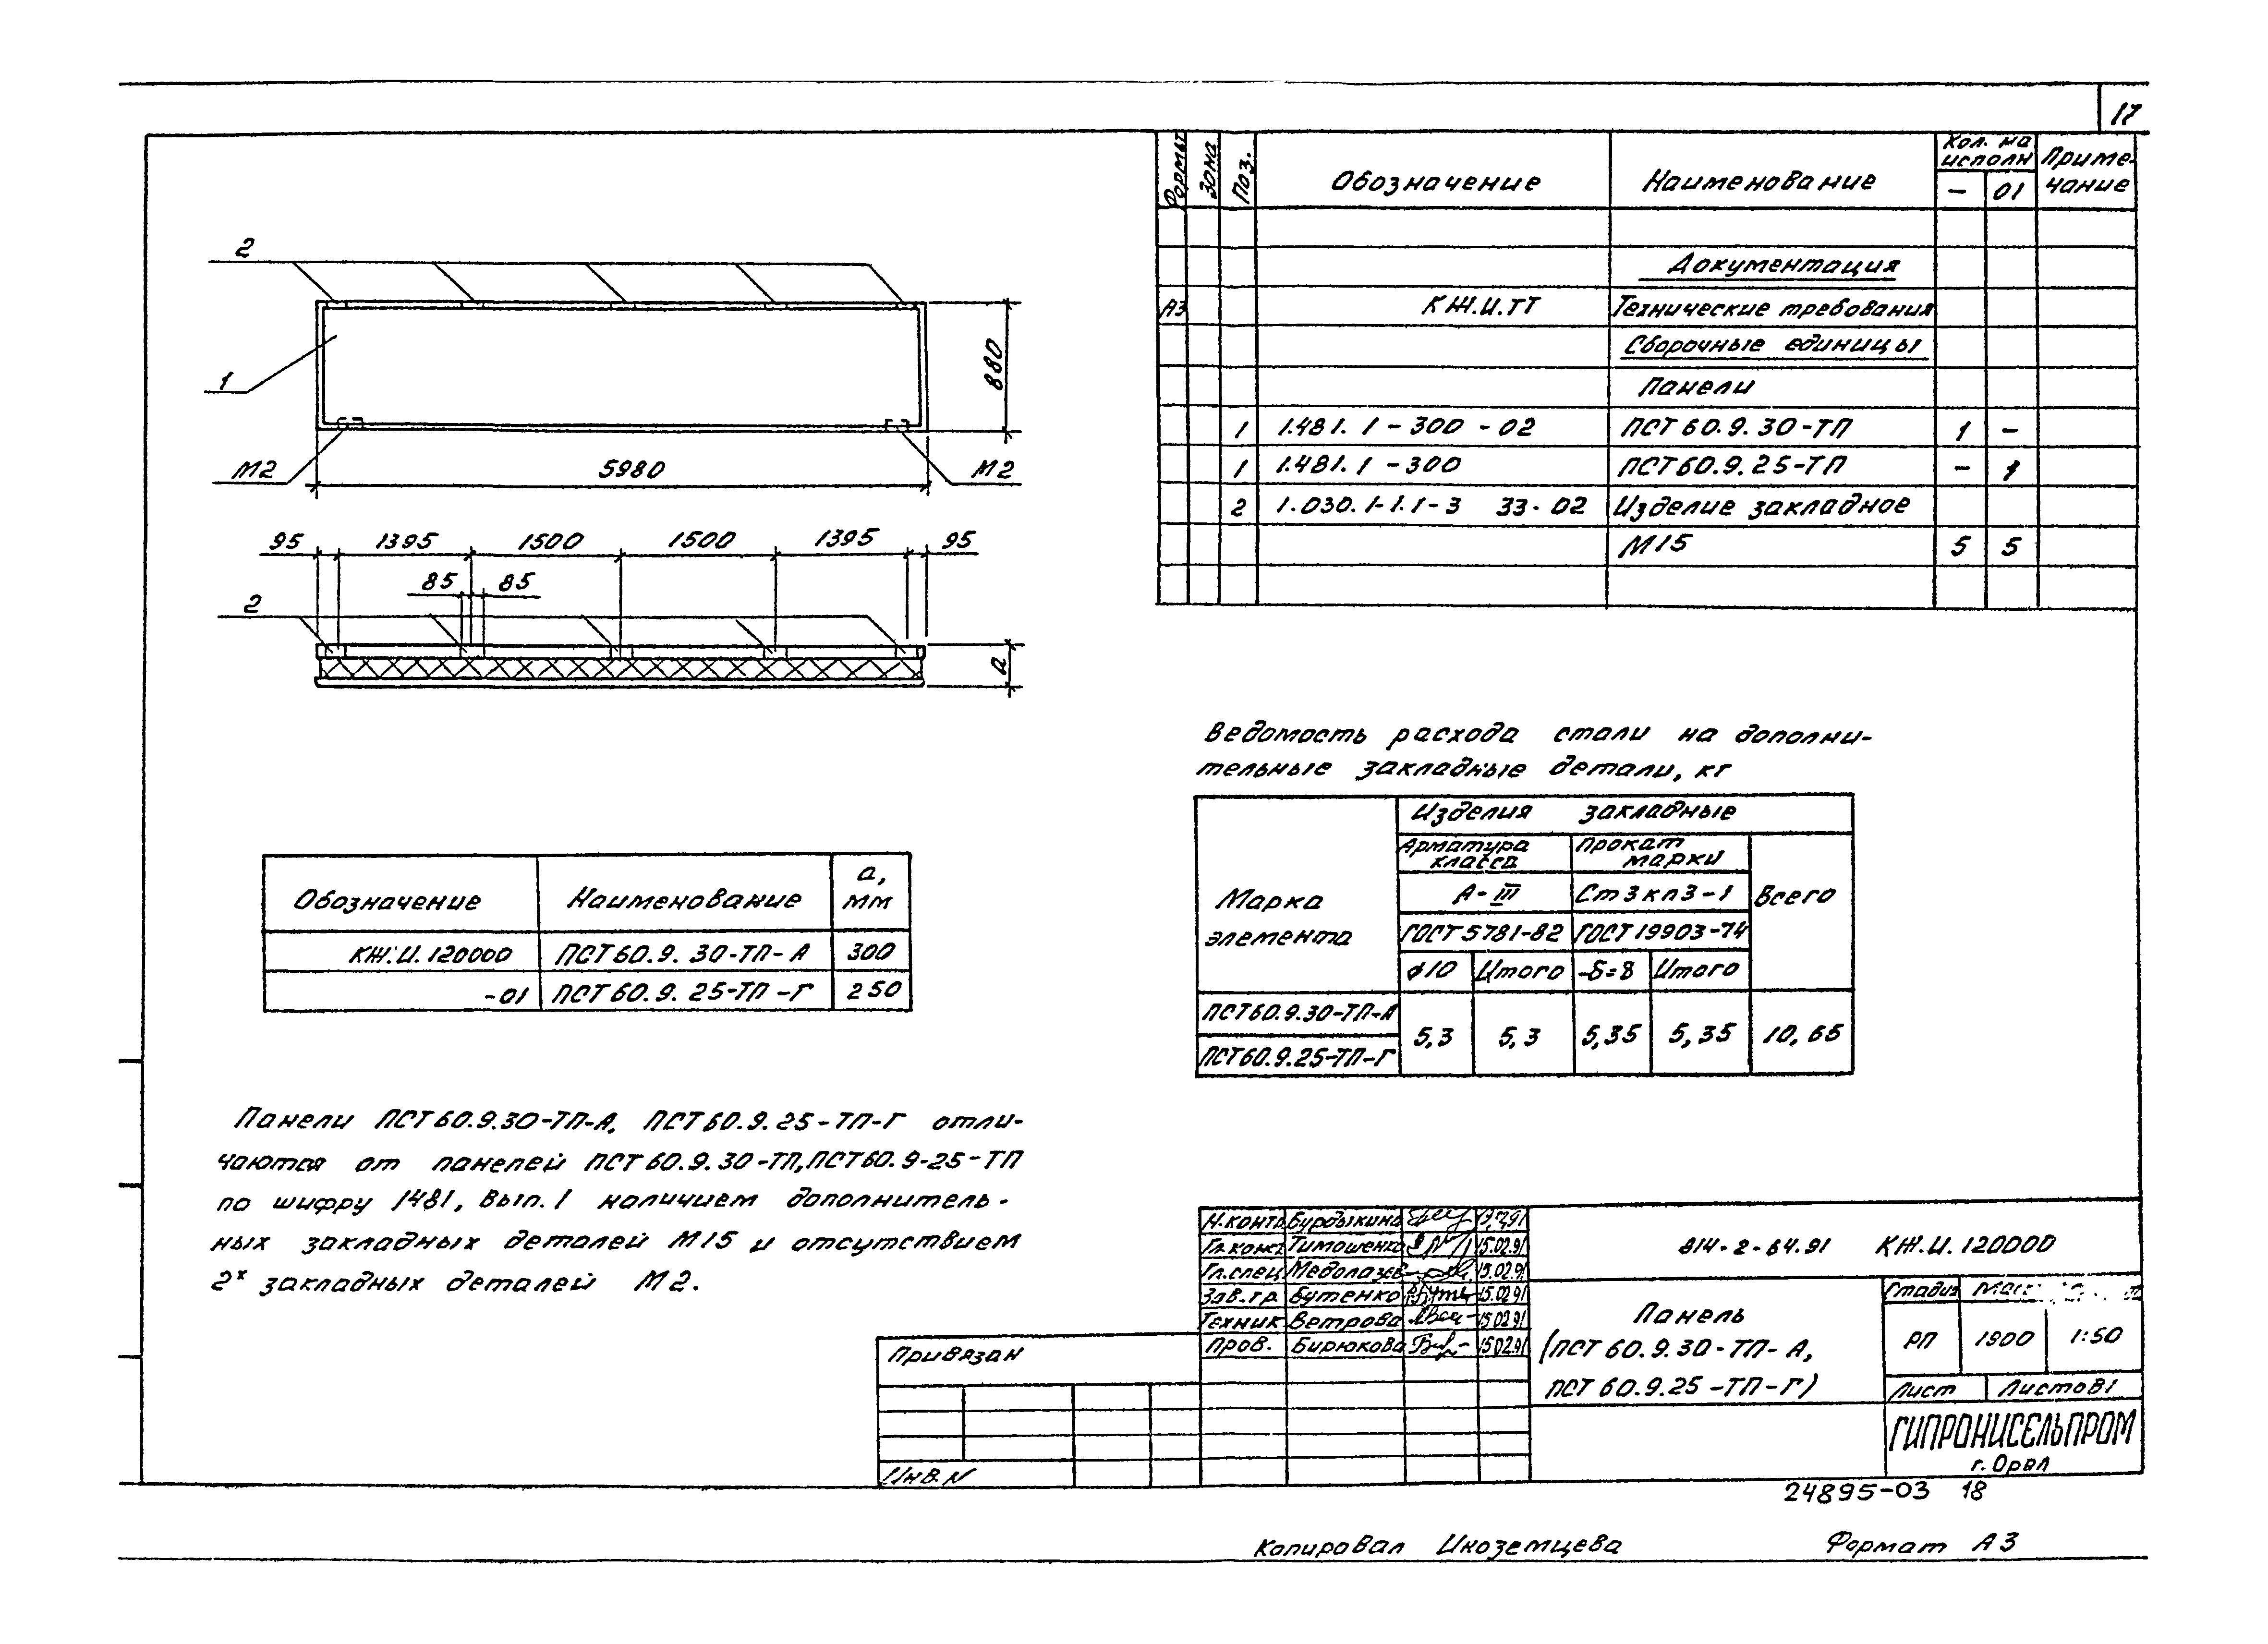 17
Формат Зона Поз. Обозначение Наименование Кол. на исполн Приме-
чание
- 01
Документация
А3 КЖ.И.ТТ Технические требования
Сборочные единицы
Панели
1 1.481.1-300-02 ПСТ 60.9.30-ТП 1 -
1 1.481.1-300 ПСТ60.9.25-ТП - 1
2 1.030.1-1.1-3 33-02 Изделие закладное
М15 5 5
2
1
880
М2 5980 М2
95 1395 1500 1500 1395 95
85 85
2
а
Ведомость расхода стали на дополни-
тельные закладные детали, кг
Марка
элемента
Изделия закладные
Арматура
класса
Прокат
марки
Всего
А-III Ст3кп3-1
ГОСТ 5781-82 ГОСТ 19903-74
ø10 Итого -δ=8 Итого
ПСТ60.9.30-ТП-А
ПСТ60.9.25-ТП-Г
5,3 5,3 5,35 5,35 10,65
Обозначение Наименование а,
мм
КЖ.И.120000 ПСТ60.9.30-ТП-А 300
-01 ПСТ60.9.25-ТП-Г 250
Панели ПСТ60.9.30-ТП-А, ПСТ60.9.25-ТП-Г отли-
чаются от панелей ПСТ60.9.30-ТП, ПСТ60.9-25-ТП
по шифру 1481, вып.1 наличием дополнитель-
ных закладных деталей М15 и отсутствием
2х закладных деталей М2.
Н.контр Бурдыкина
Гл.конст Тимошенко 15.02.91
Гл.спец 15.02.91
Зав.гр. Бутенко 15.02.91
Техник Ветрова 15.02.91
Пров. Бирюкова 15.02.91
814-2-64.91 КЖ.И.120000
Панель
(ПСТ 60.9.30-ТП-А,
ПСТ 60.9.25-ТП-Г)
Стадия
РП 1900 1:50
Лист Листов 1
ГИПРОНИСЕЛЬПРОМ
г. Орел
Привязан
Инв.N
24895-03 18
Копировал Иноземцева Формат А3